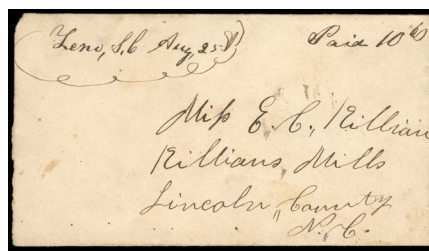 Zeno, S.C Aug, 25th
Paid 10cts
Miss E, C,, Killian
Killians,, Mills
Lincoln,, County
N,, C.